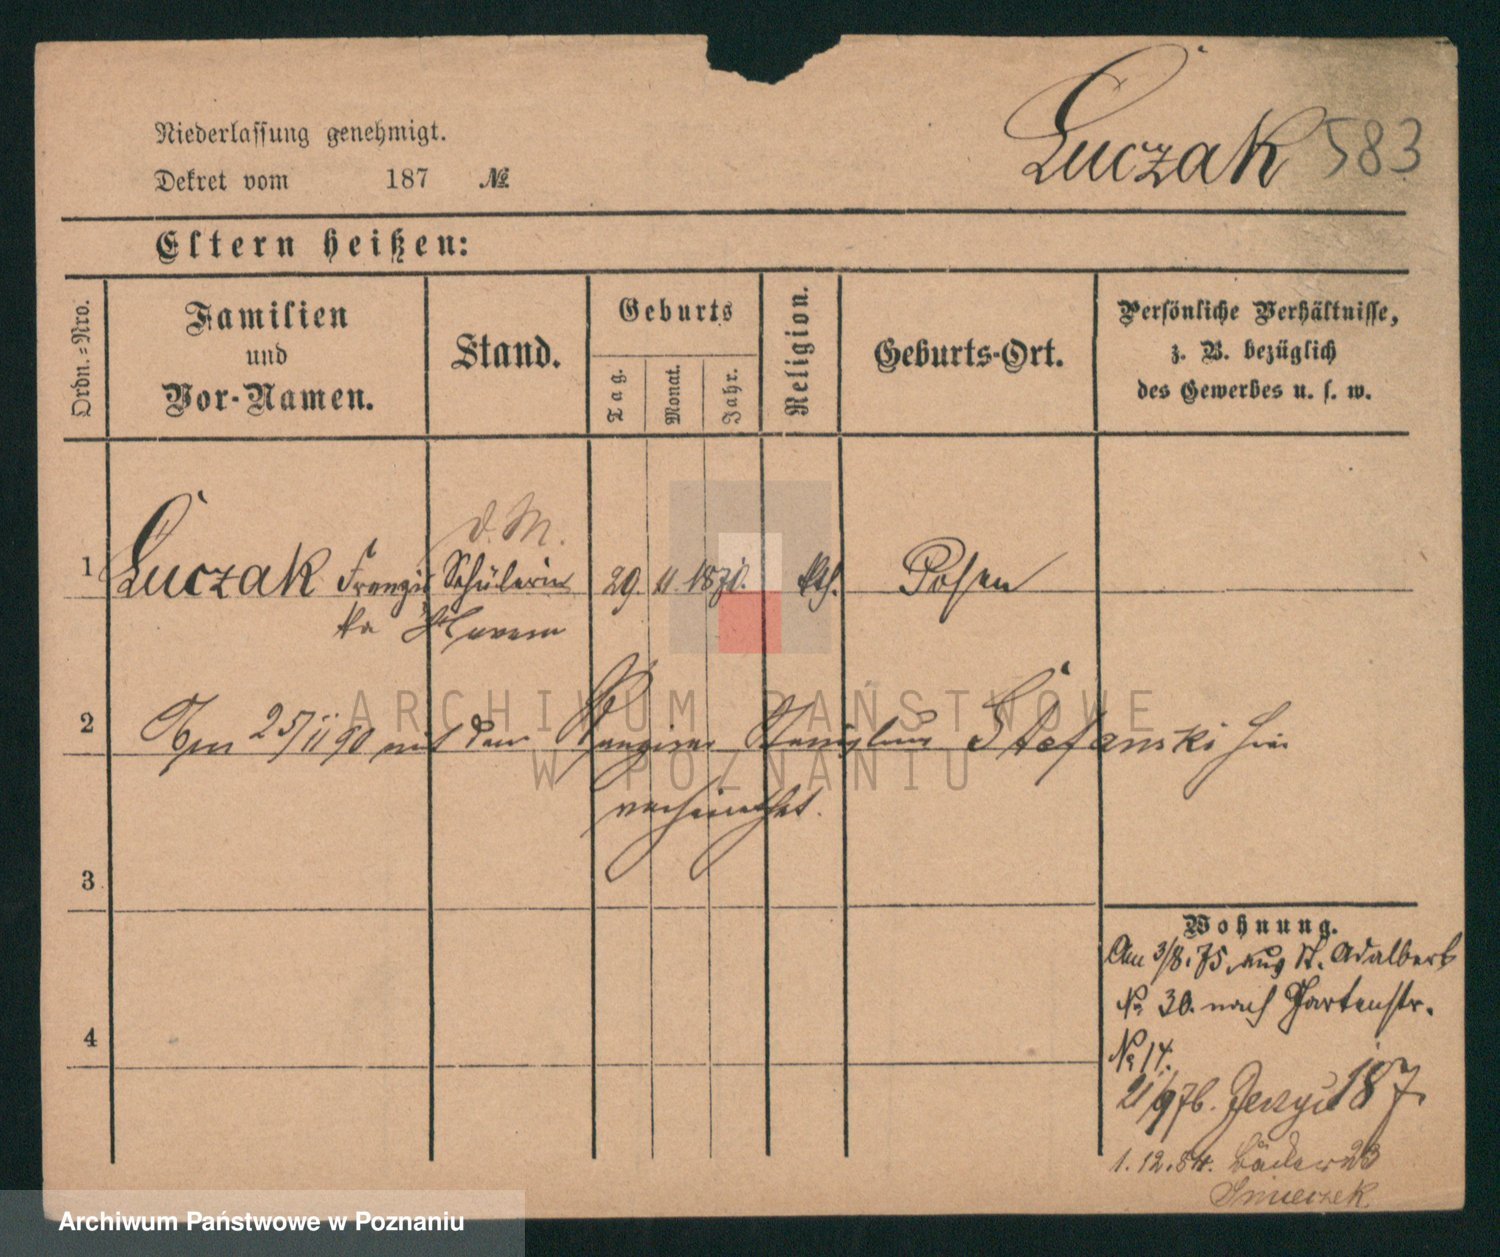 Luczak 583
Niederlassung genehmigt.
Dekret vom 187 №
Eltern heißen:
Ordn.-Nro.
Familien
und
Vor-Namen.
Stand.
Geburts
Tag.
Monat.
Jahr.
Religion.
Geburts-Ort.
Persönliche Verhältnisse,
z. B. bezüglich
des Gewerbes u. s. w.
d. M.
1 Luczak Franzis Schülerin 29. 11. 1870. kth. Posen
ka
2 Am 25/11 90 mit dem Stanislaus Stefanski hier
verheirathet.
3
4
Wohnung.
Am 3/8. 75. aus St. Adalbert
№ 30. nach Gartenstr.
№ 14.
21/9 76. Jerzyce 187.
1.12.84. Bäcker 23
ARCHIWUM PAŃSTWOWE
W POZNANIU
Archiwum Państwowe w Poznaniu